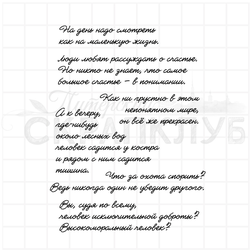 На день надо смотреть
как на маленькую жизнь.
Люди любят рассуждать о счастье.
Но никто не знает, что самое
большое счастье – в понимании.
Как ни грустно в этом
непонятном мире,
он всё же прекрасен.
А к вечеру,
где-нибудь
около лесных вод
человек садится у костра
и рядом с ним садится
тишина.
Что за охота спорить?
Ведь никогда один не убедит другого.
Вы, судя по всему,
человек исключительной доброты?
Высокоморальный человек?